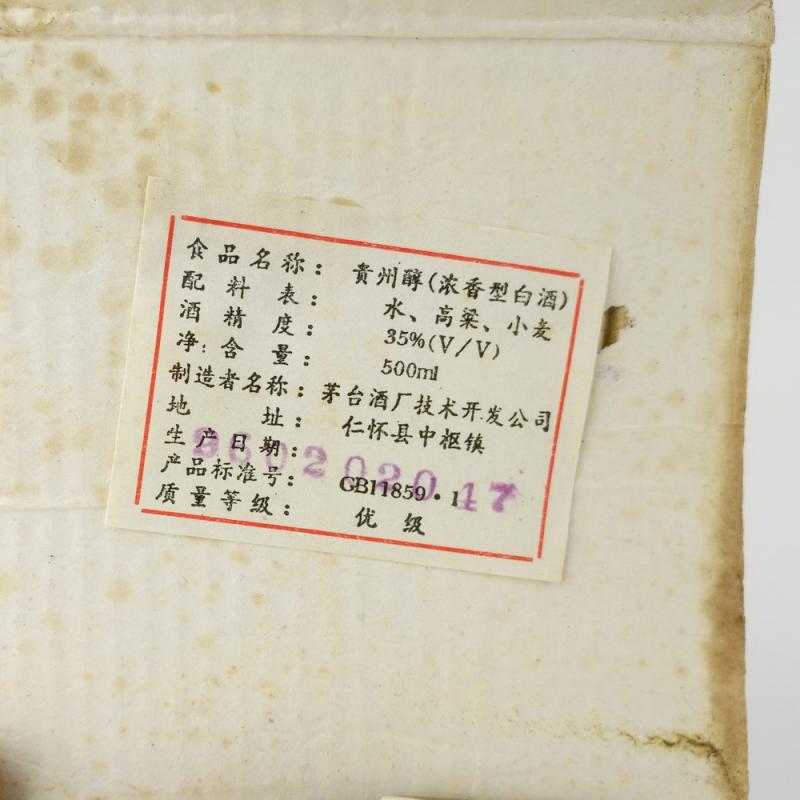 食品名称：贵州醇(浓香型白酒)
配料表：水、高粱、小麦
酒精度：35%(V/V)
净含量：500ml
制造者名称：茅台酒厂技术开发公司
地址：仁怀县中枢镇
生产日期：
9602020 47
产品标准号：GB11859·1
质量等级：优级